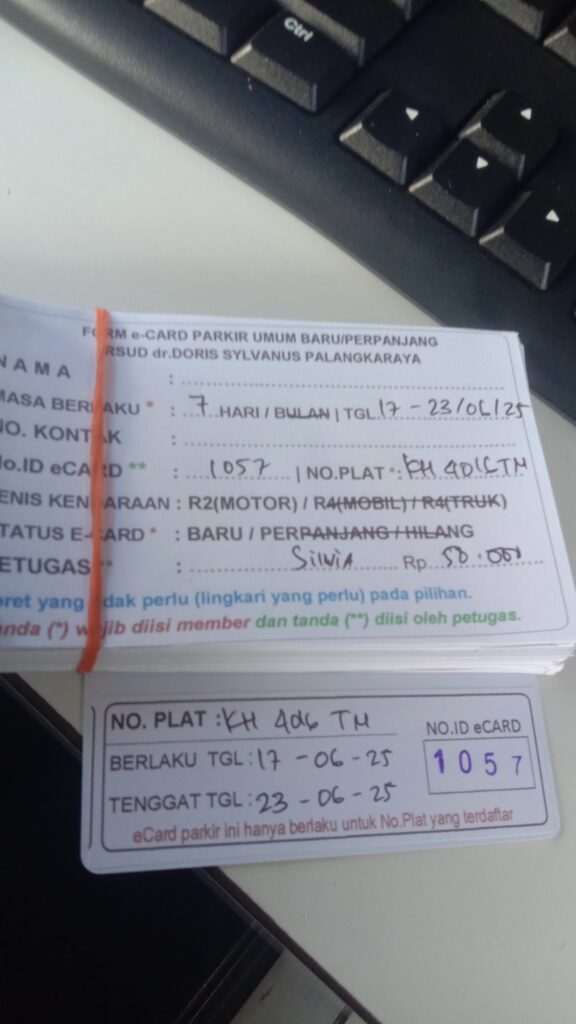 Ctrl
FORM e-CARD PARKIR UMUM BARU/PERPANJANG
RSUD dr.DORIS SYLVANUS PALANGKARAYA
NAMA :
MASA BERLAKU * : 7 HARI / BULAN | TGL 17 - 23/06/25
NO. KONTAK :
No.ID eCARD ** : 1057 | NO.PLAT *: KH TM
JENIS KENDARAAN : R2(MOTOR) / R4(MOBIL) / R4(TRUK)
STATUS E-CARD * : BARU / PERPANJANG / HILANG
PETUGAS ** : SilviA Rp. 50.000
oret yang tidak perlu (lingkari yang perlu) pada pilihan.
anda (*) wajib diisi member dan tanda (**) diisi oleh petugas.
NO. PLAT : KH 4016 TM
NO.ID eCARD
BERLAKU TGL : 17 - 06 - 25
1057
TENGGAT TGL : 23 - 06 - 25
eCard parkir ini hanya berlaku untuk No.Plat yang terdaftar